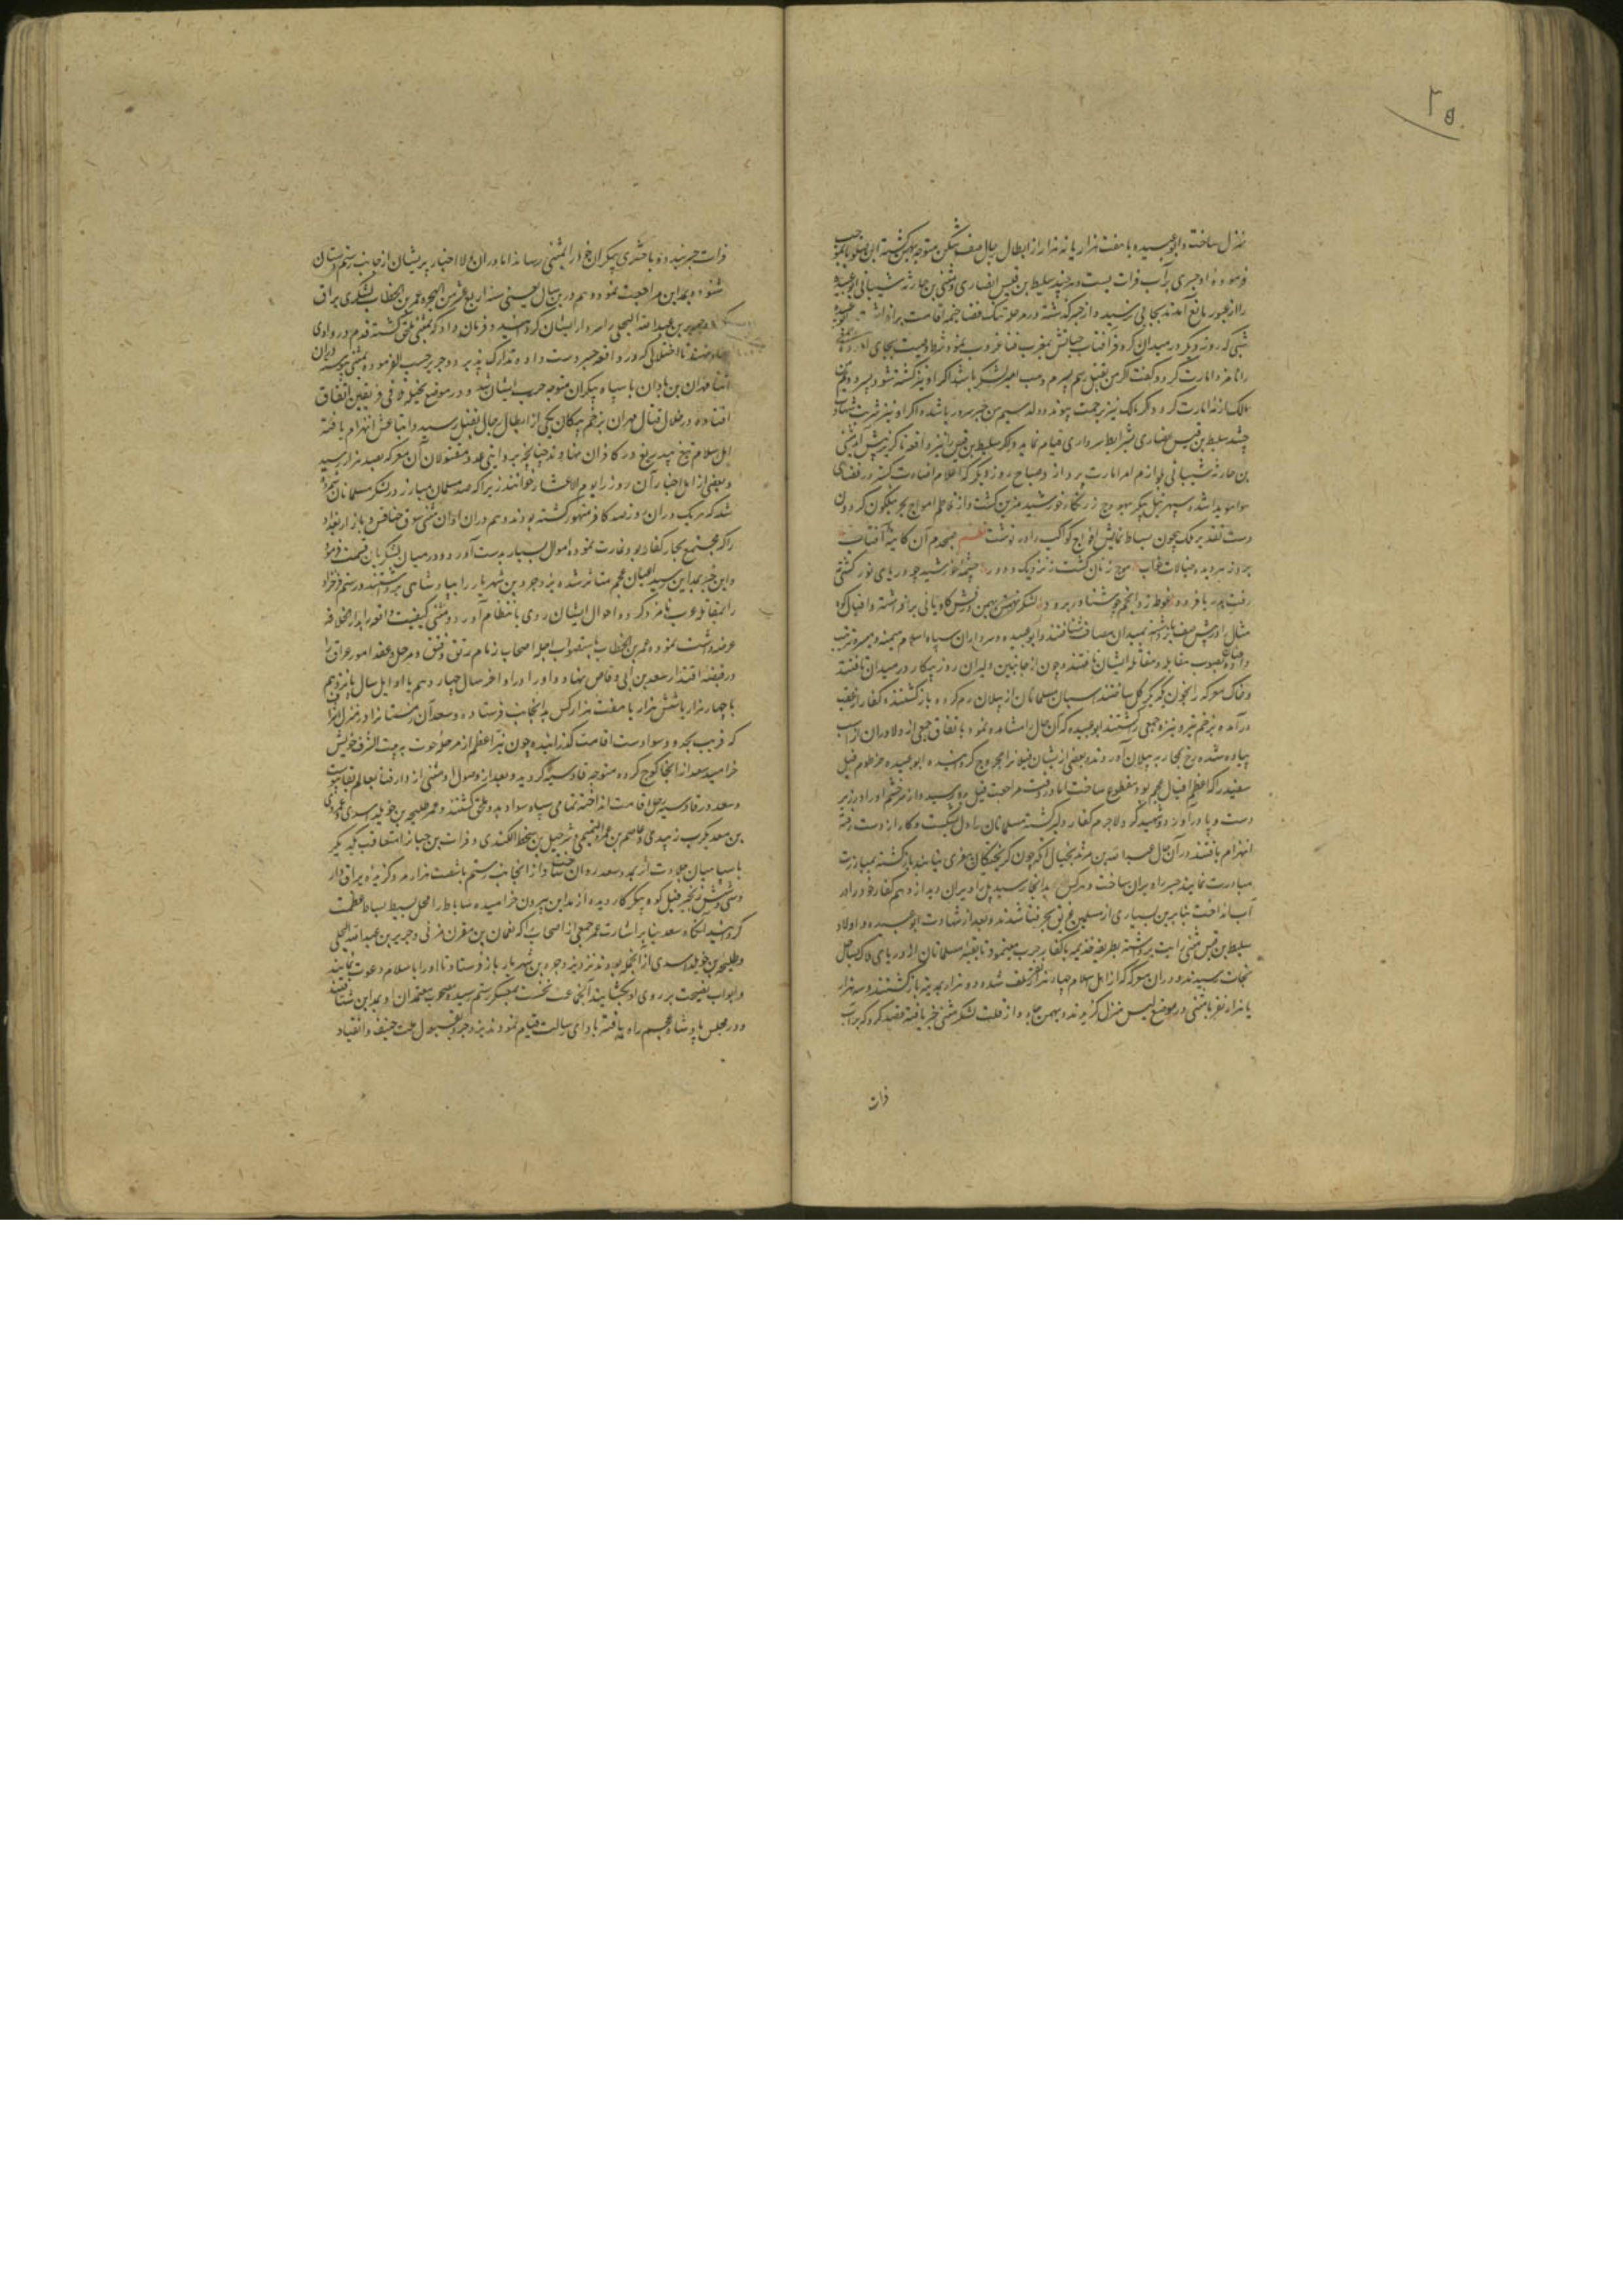 ۲۵
منزل ساخت و ابوعبیده با هفت هزار یا نه هزار از ابطال رجال صف شکن متوجه بهمن گشته ابن صلوبا بموجب
فرموده او جسری بر آب فرات بست و هرچند سلیط بن قیس انصاری و مثنی بن حارثه شیبانی ابوعبیده
را از عبور مانع آمدند بجایی نرسید و از جسر گذشته در مرحله تنک فضا خیمه اقامت برافراشت
شبی که روز دیگر در میدان کر و فر آفتاب حیاتش بمغرب فنا غروب نمود شرط وصیت بجای آورده
را نامزد امارت کرد و گفت اگر من بقتل رسم پسرم وهب امیر لشکر باشد اگر او نیز کشته شود پسر دیگرم
مالک از نه امارت کرد و اگر مالک نیز برحمت پیوندد ولد سیم من جبر سرور باشد و اگر او نیز شربت شهادت
چشد سلیط بن قیس انصاری بشرایط سرداری قیام نماید و اگر سلیط بن قیس را نیز واقعه ناگزیر پیش آید مثنی
بن حارثه شیبانی بلوازم امر امارت پردازد و صباح روز دیگر که اعلام اضاءت گستر در فضای
هوا هویدا شد و سپهر جبل پیکر بهودج زرنگار خورشید مزین گشت و از تلاطم امواج بحر نیلگون گردون
دست تقدیر فلک چون بساط نمایش افواج کواکب را در نوشت نظم صبحدم آن کاینه آفتاب
رفت بدریا فرو دو غوطه زد و انجم چو شناور برو لشکر بهمن درفش کاویانی برافراشته و افیال کوه
مثال را در پیش صف بازداشته بمیدان مصاف شتافتند و ابوعبیده و سرداران سپاه اسلام میمنه و میسره ترتیب
داده بصوب مقابله و مقاتله ایشان تافتند و چون از جانبین دلیران روز پیکار در میدان تافتند
و خاک معرکه را بخون یکدیگر گل ساختند اسبان مسلمانان از پیلان رم کرده بازگشتند و کفار از عقب
درآمده بزخم تیر و نیزه جمعی را کشتند ابوعبیده که آن حال را مشاهده نمود باتفاق جمعی از دلاوران از اسب
پیاده شده رخ بمحاربه پیلان آوردند و بعضی از ایشان فیلانرا مجروح گردانیده ابوعبیده خرطوم فیل
سفید را که اعظم افیال عجم بود مقطوع ساخت اما در وقت مراجعت فیل بدو رسید و از سر خشم او را در زیر
دست و پا درآورد و شهید کرد لاجرم کفار دلیر گشته مسلمانان را دل شکست و کار از دست رفته
انهزام یافتند در آن حال عبدالله بن مرثد بخیال آنکه چون گریختگان مفری نیابند بازگشته بمبارزت
مبادرت نمایند جسر را ویران ساخت و هرکس بدانجا رسید پل را ویران دید از وهم کفار خود را در
آب انداخت بنابرین بسیاری از مسلمین غریق بحر فنا شدند و بعد از شهادت ابوعبیده و اولاد
سلیط بن قیس مثنی رایت برداشته بطریقه قدیمه با کفار حرب مینمود تا بقیه مسلمانان از دریای هلاک بساحل
نجات رسیدند و در آن معرکه از اهل اسلام چهار هزار کس تلف شده دو هزار بمدینه بازگشتند و سه هزار
یا هزار نفر با مثنی در موضع الیس منزل گزیدند و بهمن جادو از قلت لشکر مثنی خبر یافته قصد کرد که بر آب
فرات
فرات جسر بندد و با حشری بیکران خود را بمثنی رساند اما در آن ولا اخبار پریشان از جانب رستم دستان
شنوده بمداین مراجعت نمود و هم درین سال یعنی سنه اربع عشر من الهجره عمر بن الخطاب لشکری براق
جریر بن عبدالله البجلی را سردار ایشان گردانید و فرمان داد که بمثنی ملحق گشته قدم در وادی
جهاد نهند تا اختلالی که در واقعه جسر دست داده تدارک پذیرد و جریر حسب الفرموده بمثنی پیوسته درین
اثنا مهران بن باذان با سپاه بیکران متوجه حرب ایشان شد و در موضع نخیله تلاقی فریقین اتفاق
افتاده در خلال قتال مهران بزخم پیکان یکی از ابطال رجال بقتل رسید و اتباعش انهزام یافته
اهل اسلام تیغ بیدریغ در کافران نهادند چنانچه بروایتی عدد مقتولان آن معرکه بصد هزار رسید
و بعضی از اهل اخبار آن روز را یوم الاعشار خوانند زیرا که صد مسلمان مبارز در لشکر مسلمانان شمرده
شد که هریک در آن روز صد کافر مقهور کشته بودند و هم در آن اوان مثنی سوق خنافس و بازار بغداد
را که مجتمع تجار کفار بود غارت نموده اموال بسیار بدست آورد و در میان لشکریان قسمت فرمود
و این خبر بمداین رسید اعیان عجم متاثر شده یزدجرد بن شهریار را بپادشاهی برداشتند و رستم فرخزاد
را بمقابله عرب نامزد کرده احوال ایشان روی بانتظام آورد و مثنی کیفیت واقعه را بدار الخلافه
عرضه داشت نموده عمر بن الخطاب باستصواب اجله اصحاب زمام رتق و فتق و مرحل و عقد امور عراق را
در قبضه اقتدار سعد بن ابی وقاص نهاد و او را در اواخر سال چهاردهم یا اوایل سال پانزدهم
با چهار هزار یا شش هزار یا هفت هزار کس بدانجانب فرستاده و سعد آن زمستانرا در منزل
که قریب بحدود سواد است اقامت گذرانیده چون نیر اعظم از مرحله حوت به بیت الشرف خویش
خرامید سعد از آنجا کوچ کرده متوجه قادسیه گردید و بعد از وصول او مثنی از دار فنا بعالم بقا پیوست
و سعد در قادسیه رحل اقامت انداخته تمامی سپاه سواد بدو ملحق گشتند و عمر طلیحه بن خویلد اسدی و عمرو
بن معدیکرب زبیدی و عاصم بن عمرو التمیمی و شرحبیل بن سمط الکندی و فرات بن حیان را متعاقب یکدیگر
با سپاهیان جلادت اثر بمدد سعد روان ساخت و از آنجانب رستم با شصت هزار مرد گزیده یراق دار
و سی و شش زنجیر فیل کوه پیکر کار دیده از مداین بیرون خرامیده ساباط را محل بسط بساط عظمت
گردانید آنگاه سعد بنابر اشارت عمر جمعی از اصحاب را که نعمان بن مقرن مزنی و جریر بن عبدالله البجلی
و طلیحه بن خویلد اسدی از آنجمله بودند نزد یزدجرد بن شهریار باز فرستاد تا او را باسلام دعوت نمایند
و ابواب نصیحت بر روی او بگشایند آنجماعت نخست بمعسکر رستم رسیده مصحوب معتمدان او بمداین شتافتند
و در مجلس پادشاه عجم راه یافته باداى رسالت قیام نمودند یزدجرد بقبول ملت حنیف و انقیاد